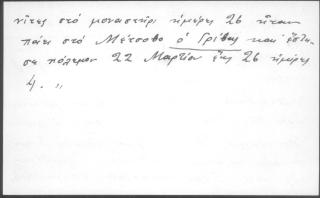 νῖτες στό μοναστήρι ἡμέρες 26 ἦταν
πάει στό Μέτσοβο ὁ Γρίβας καί ἔστη-
σε πόλεμον 22 Μαρτίου ἕως 26 ἡμέρες
4. "